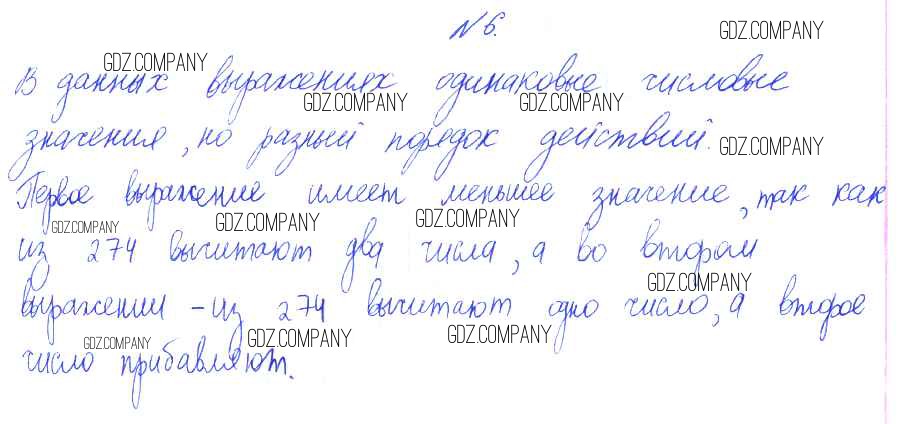 № 6.
GDZ.COMPANY
GDZ.COMPANY
В данных выражениях одинаковые числовые
GDZ.COMPANY GDZ.COMPANY
значения, но разный порядок действий.
GDZ.COMPANY
Первое выражение имеет меньшее значение, так как
GDZ.COMPANY GDZ.COMPANY GDZ.COMPANY
из 274 вычитают два числа, а во втором
GDZ.COMPANY
выражении - из 274 вычитают одно число, а второе
GDZ.COMPANY GDZ.COMPANY GDZ.COMPANY
число прибавляют.